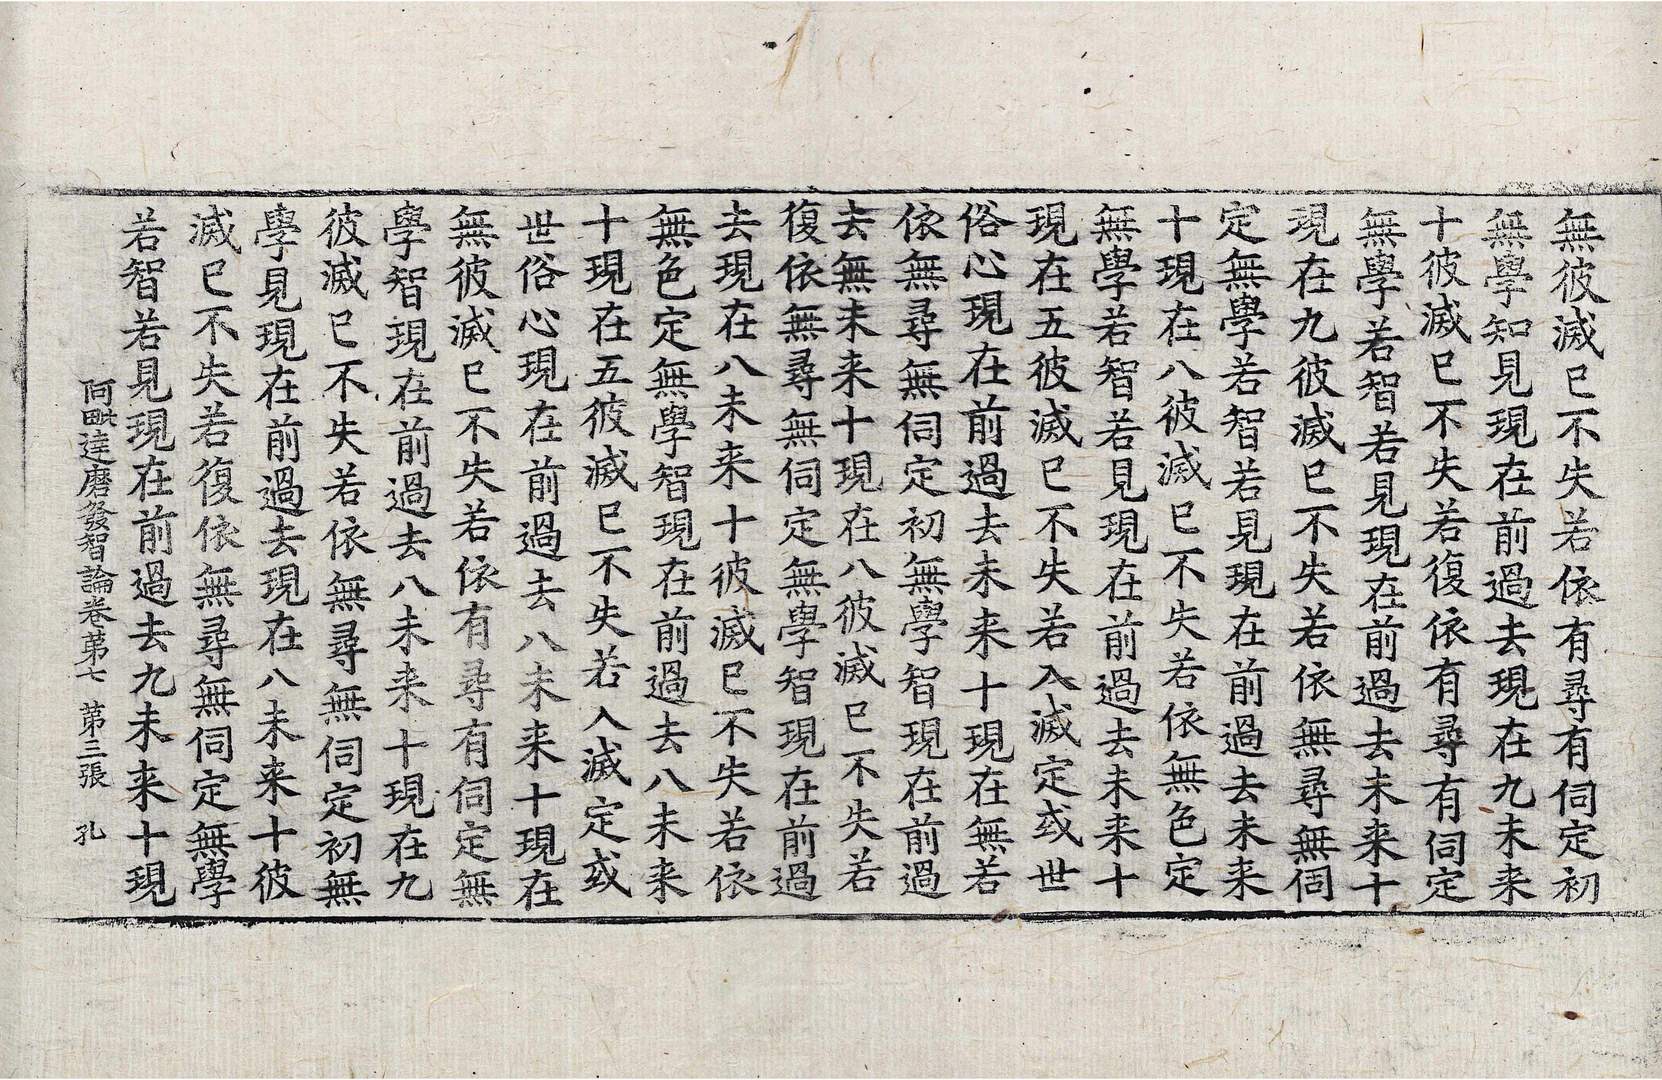 無彼滅已不失若依有尋有伺定初
無學知見現在前過去現在九未来
十彼滅已不失若復依有尋有伺定
無學若智若見現在前過去未来十
現在九彼滅已不失若依無尋無伺
定無學若智若見現在前過去未来
十現在八彼滅已不失若依無色定
無學若智若見現在前過去未来十
現在五彼滅已不失若入滅定或世
俗心現在前過去未来十現在無若
依無尋無伺定初無學智現在前過
去無未来十現在八彼滅已不失若
復依無尋無伺定無學智現在前過
去現在八未来十彼滅已不失若依
無色定無學智現在前過去八未来
十現在五彼滅已不失若入滅定或
世俗心現在前過去八未来十現在
無彼滅已不失若依有尋有伺定無
學智現在前過去八未来十現在九
彼滅已不失若依無尋無伺定初無
學見現在前過去現在八未来十彼
滅已不失若復依無尋無伺定無學
若智若見現在前過去九未来十現
阿毗達磨發智論卷苐七 苐三張 孔